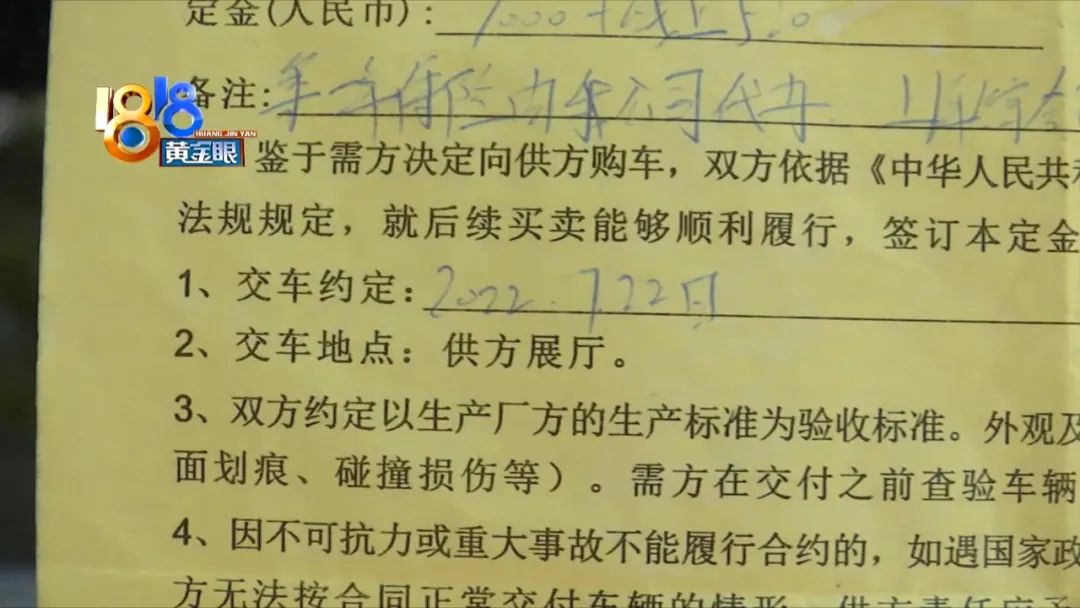 定金(人民币):
备注: 车辆保险由本公司代办
1818
HUANG JIN YAN
黄金眼
鉴于需方决定向供方购车，双方依据《中华人民共和
法规规定，就后续买卖能够顺利履行，签订本定金
1、交车约定: 2022.7.22日
2、交车地点: 供方展厅。
3、双方约定以生产厂方的生产标准为验收标准。外观及
面划痕、碰撞损伤等）。需方在交付之前查验车辆
4、因不可抗力或重大事故不能履行合约的，如遇国家政
方无法按合同正常交付车辆的情形，供方责任应予